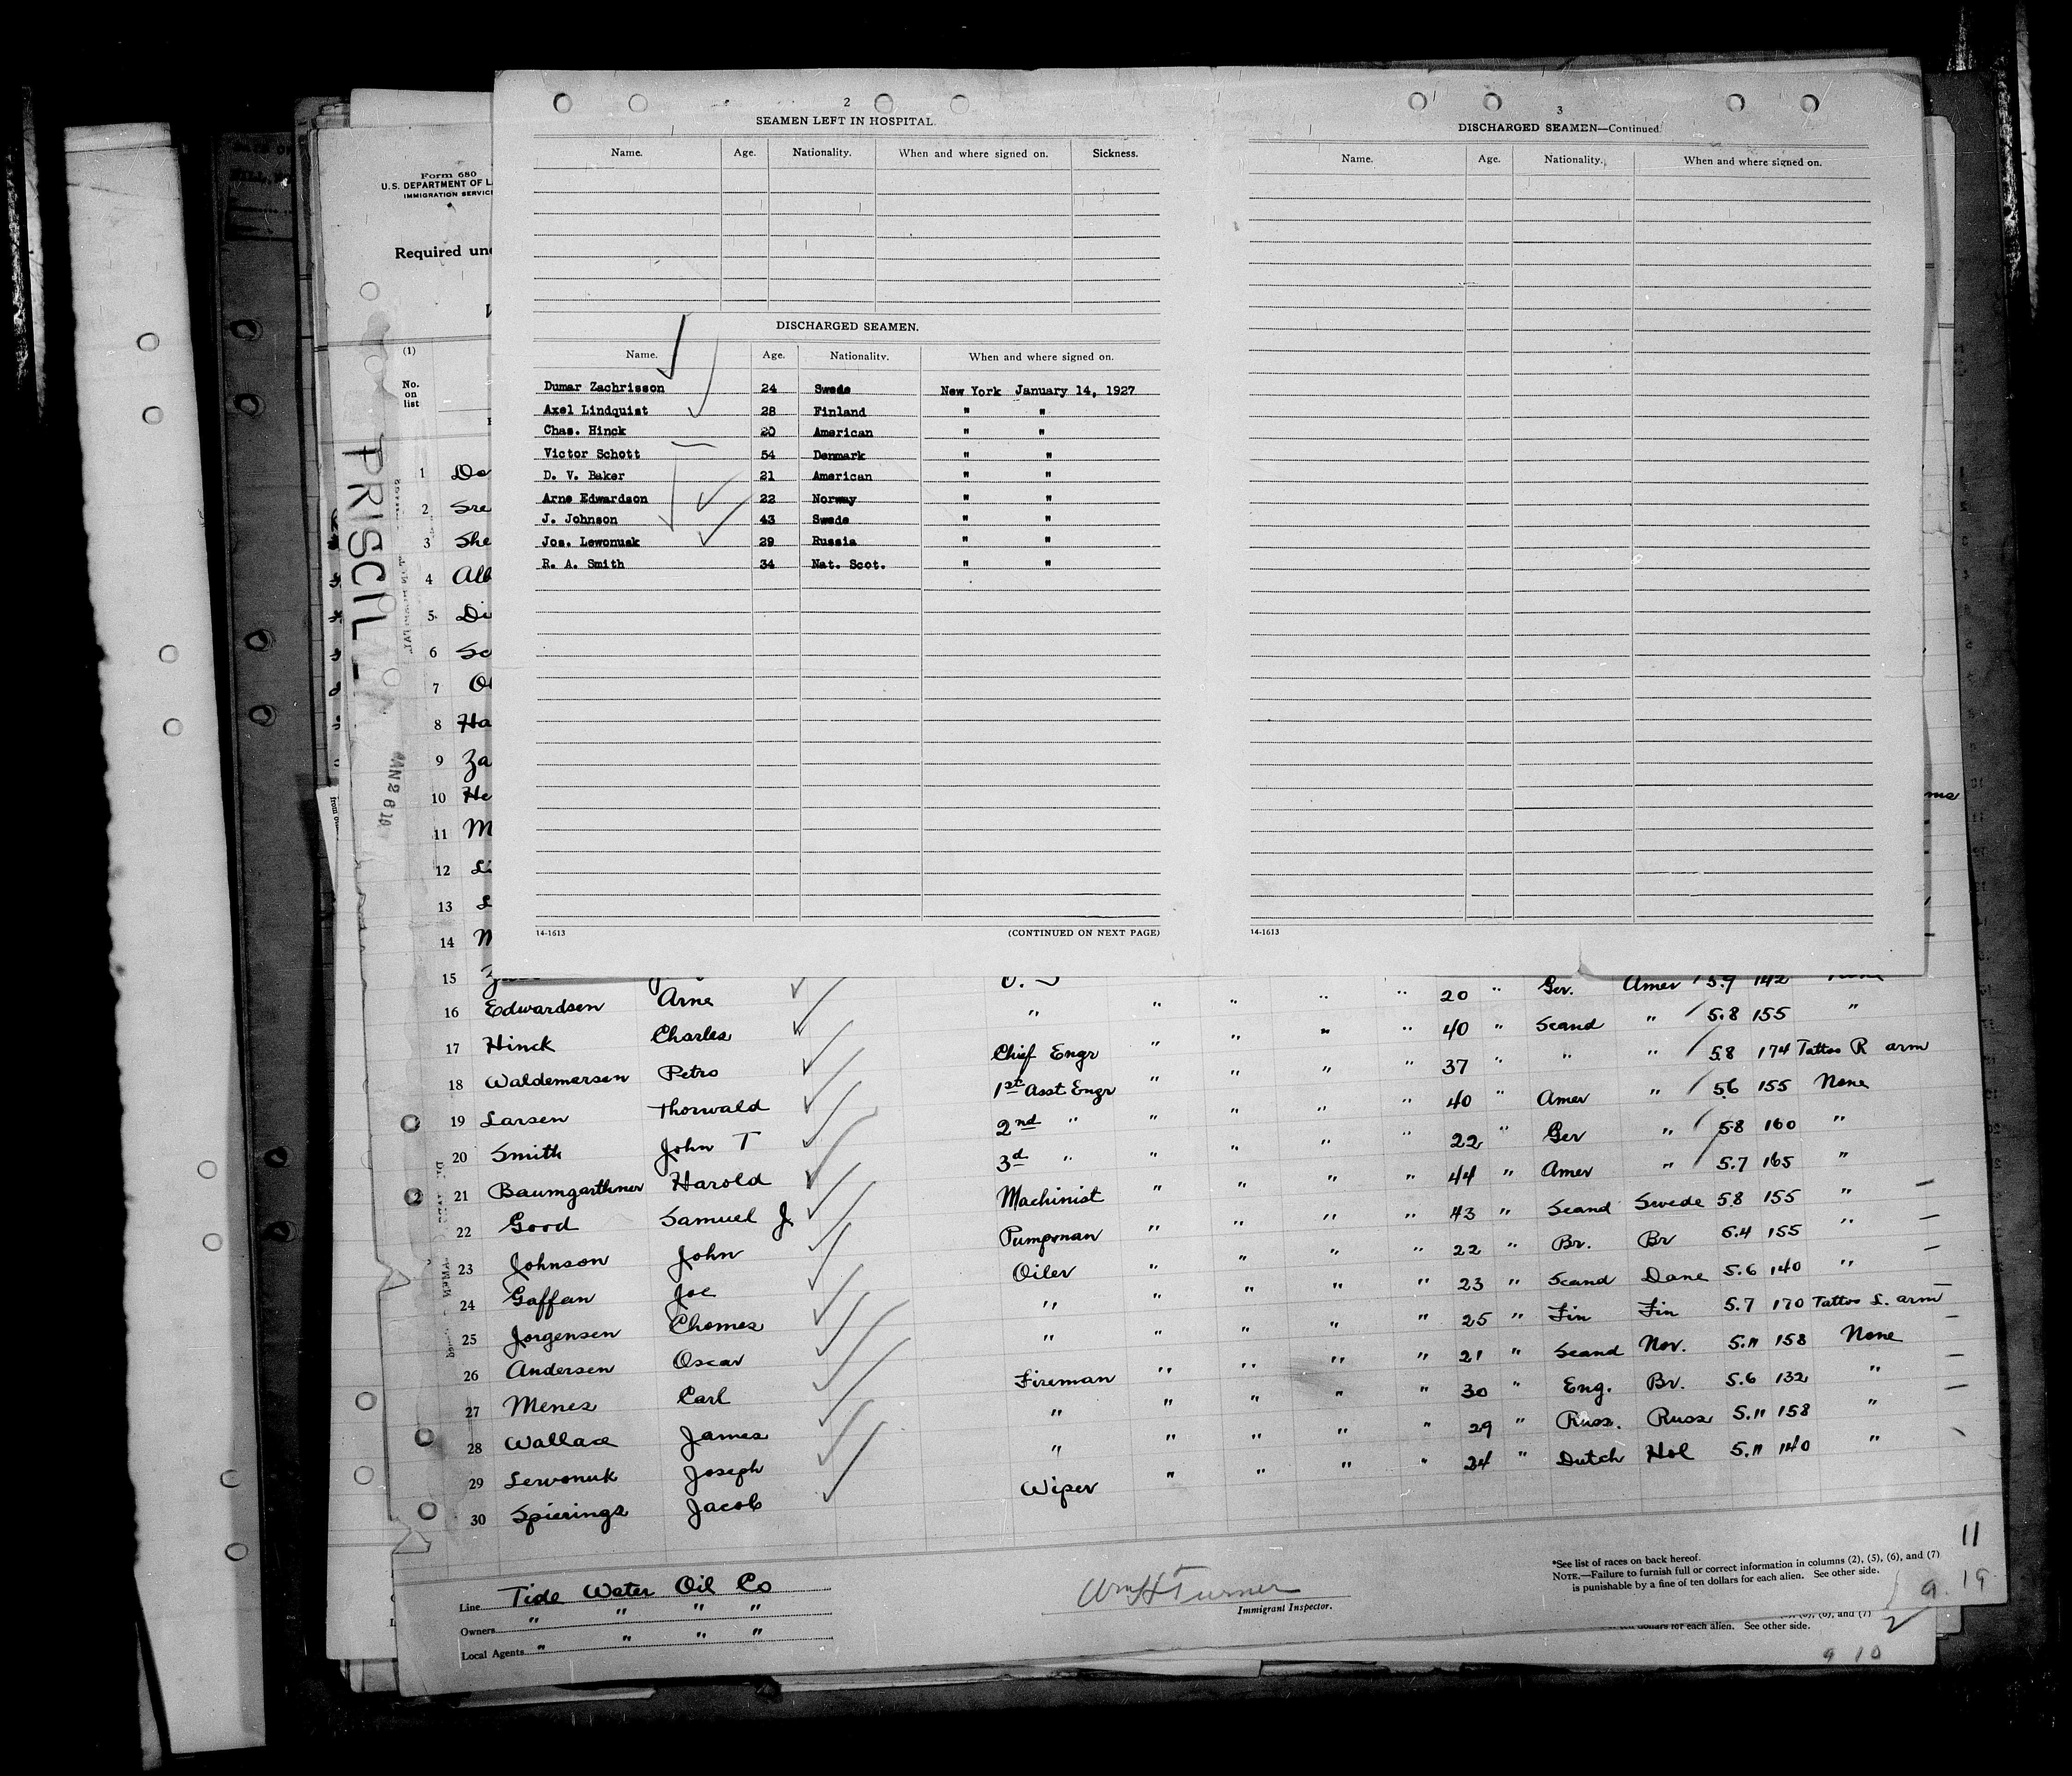 2
SEAMEN LEFT IN HOSPITAL.
Name. Age. Nationality. When and where signed on. Sickness.
DISCHARGED SEAMEN.
Name. Age. Nationality. When and where signed on.
Dumar Zachrisson 24 Swede New York January 14, 1927
Axel Lindquist 28 Finland " "
Chas. Hinck 20 American " "
Victor Schott 54 Denmark " "
D. V. Baker 21 American " "
Arne Edwardson 22 Norway " "
J. Johnson 43 Swede " "
Jos. Lewonusk 29 Russia " "
R. A. Smith 34 Nat. Scot. " "
14-1613 (CONTINUED ON NEXT PAGE)
3
DISCHARGED SEAMEN—Continued.
Name. Age. Nationality. When and where signed on.
14-1613
Form 680
U.S. DEPARTMENT OF L
IMMIGRATION SERVIC
Required und
(1)
No.
on
list
PRISCIL
1 Do
2 Sre
3 She
4 Alb
5 Di
6 Sc
7 Ol
8 Ha
9 Za
10 He
11 M
12 Li
13 L
14 M
15
Ger. Amer 5.9 142 None
16 Edwardsen Arne " " " " " 20 " Scand " 5.8 155 "
17 Hinck Charles Chief Engr " " " " 40 " " " 5.8 174 Tattoo R arm
18 Waldemarsen Petro 1st Asst Engr " " " " 37 " Amer " 5.6 155 None
19 Larsen Thorwald 2nd " " " " " 40 " Ger " 5.8 160 "
20 Smith John T 3d " " " " " 22 " Amer " 5.7 165 "
21 Baumgarthner Harold Machinist " " " " 44 " Scand Swede 5.8 155 "
22 Good Samuel J. Pumpman " " " " 43 " Br. Br 6.4 155 "
23 Johnson John Oiler " " " " 22 " Scand Dane 5.6 140 "
24 Gaffan Joe " " " " " 23 " Fin Fin 5.7 170 Tattoo L. arm
25 Jorgensen Chomes " " " " " 25 " Scand Nor. 5.11 158 None
26 Andersen Oscar Fireman " " " " 21 " Eng. Br. 5.6 132 "
27 Menes Carl " " " " " 30 " Russ. Russ 5.11 158 "
28 Wallace James " " " " " 29 " Dutch Hol 5.11 140 "
29 Lewonuk Joseph Wiper " " " " 24 "
30 Spierings Jacob
Line Tide Water Oil Co
Owners " " " "
Local Agents " " " "
Wm H Turner
Immigrant Inspector.
*See list of races on back hereof.
NOTE.—Failure to furnish full or correct information in columns (2), (5), (6), and (7)
is punishable by a fine of ten dollars for each alien. See other side.
11
9. 19
2
(6), and (7)
for each alien. See other side.
9 10